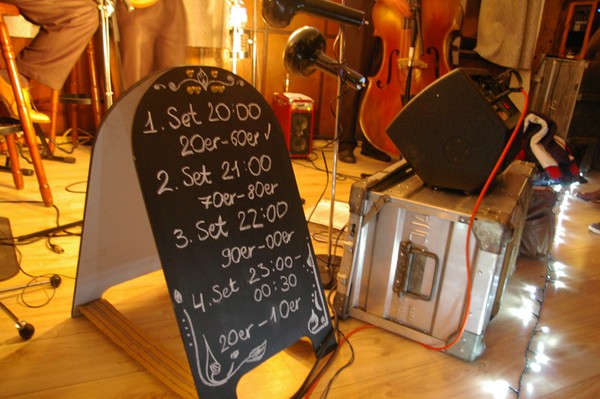 1. Set 20:00
20er-60er ✓
2. Set 21:00
70er-80er
3. Set 22:00
90er-00er
4. Set 23:00-
00:30
20er-10er